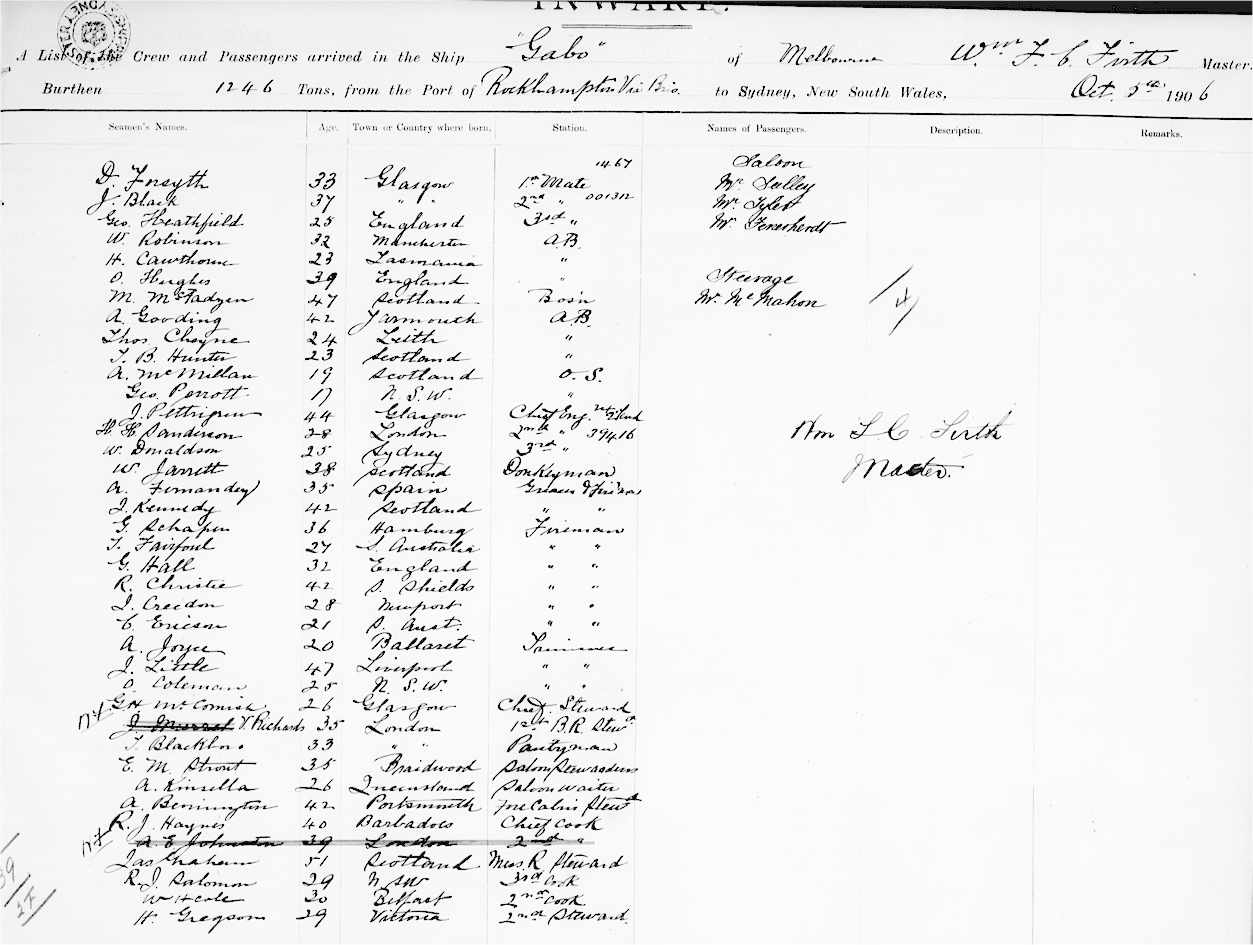 INWARD.
A List of the Crew and Passengers arrived in the Ship "Gabo" of Melbourne Wm F. C. Firth Master,
Burthen 1246 Tons, from the Port of Rockhampton Via Bris. to Sydney, New South Wales, Oct. 5th 1906
Seamen's Names. Age. Town or Country where born. Station. Names of Passengers. Description. Remarks.
1467 Saloon
D. Forsyth 33 Glasgow 1st Mate Mr Salley
J. Black 37 " " 2nd " 001312 Mr Tyler
Geo. Heathfield 25 England 3rd " Mr
W. Robinson 32 Manchester A.B.
H. Cawthorne 23 Tasmania "
O. Hughes 39 England " Steerage
M. McFadzen 47 Scotland Bos'n Mr. McMahon
A. Gooding 42 Yarmouth A.B.
Thos Cheyne 24 Leith "
T. B. Hunter 23 Scotland "
A. McMillan 19 Scotland O.S.
Geo. Perrott 17 N.S.W. "
J. Pettigrew 44 Glasgow Chief Eng.
H. H. Sanderson 28 London 2nd " 39416 Wm F C Firth
W. Donaldson 25 Sydney 3rd "
W. Jarrett 38 Scotland Donkeyman Master.
A. Fernandez 35 Spain Greaser & Fireman
J. Kennedy 42 Scotland " "
G. Schaper 36 Hamburg Fireman
T. Fairfoul 27 S. Australia " "
G. Hall 32 England " "
R. Christie 42 S. Shields " "
J. Creedon 28 Newport " "
C. Ericson 21 S. Aust. " "
A. Joyce 20 Ballarat Trimmer
J. Little 47 Liverpool " "
O. Coleman 25 N.S.W. " "
G H McComish 26 Glasgow Chief. Steward
J. Murrel V. Richards 35 London 1st B.R. Stewd
T. Blackboro 33 " " Pantryman
E. M. Strout 35 Braidwood Saloon Stewardess
A. Kinsella 26 Queensland Saloon Waiter
A. Bennington 42 Portsmouth Fore Cabin Stewd
R. J. Haynes 40 Barbados Chief Cook
A. E. Johnston 39 London 2nd "
Jas Graham 51 Scotland Mess. R. Steward
R. J. Salomon 29 N.S.W 3rd Cook
W H Cole 30 Belfast 2nd Cook
H. Gregson 29 Victoria 2nd Steward